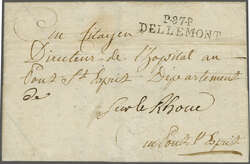 P.87.P
DELLEMONT
Au Citoyen
Directeur de l'hopital au
Pont St Esprit Departement
de
Sur le Rhone
au Pont St Esprit